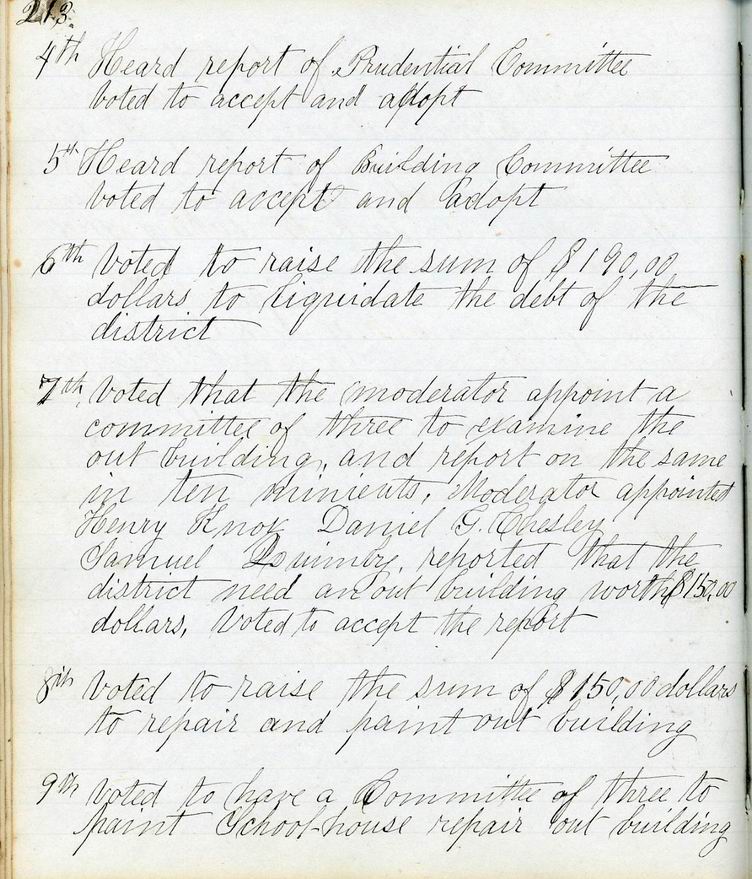 213.
4th Heard report of Prudential Committee
voted to accept and adopt
5th Heard report of Building Committee
voted to accept and adopt
6th voted to raise the sum of $190,00
dollars to liquidate the debt of the
district
7th, voted that the moderator appoint a
committee of three to examine the
out building, and report on the same
in ten minieuts, Moderator appointed
Henry Knox Daniel G. Chesley
Samuel Quimby, reported that the
district need an out building worth $150,00
dollars, voted to accept the report
8th voted to raise the sum of $150,00 dollars
to repair and paint out building
9th voted to have a Committee of three to
paint School-house repair out building